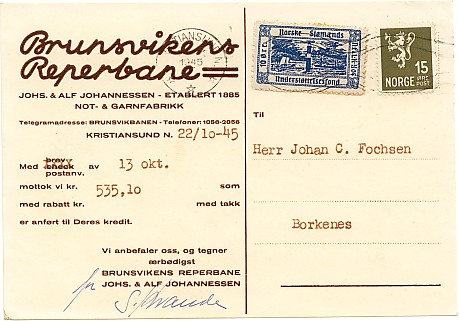 Brunsvikens
Reperbane
JOHS. & ALF JOHANNESSEN - ETABLERT 1885
NOT- & GARNFABRIKK
Telegramadresse: BRUNSVIKBANEN - Telefoner: 1056-2056
KRISTIANSUND N. 22/10-45
Med brev check postanv. av 13 okt.
mottok vi kr. 535,10 som
med rabatt kr. med takk
er anført til Deres kredit.
Vi anbefaler oss, og tegner
ærbødigst
BRUNSVIKENS REPERBANE
pr JOHS. & ALF JOHANNESSEN
1945
Norske Sjømænds
Understøttelsesfond
10 øre
15
NORGE ØRE POST
Til
Herr Johan C. Fochsen
Borkenes